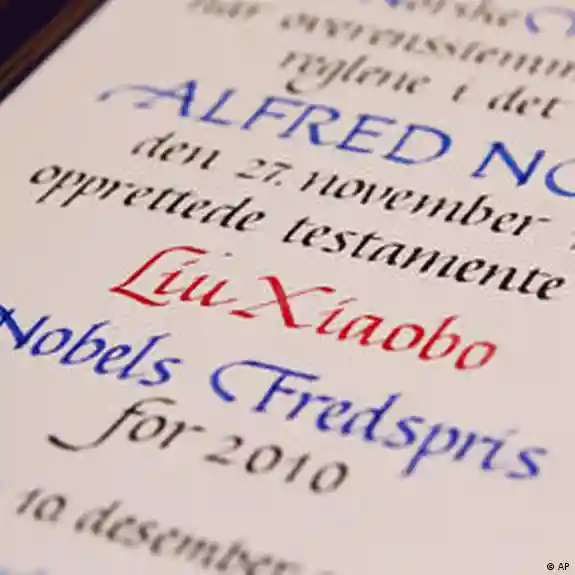 Norske
har overensstemm
reglene i det
ALFRED NO
den 27. november
opprettede testamente
Liu Xiaobo
Nobels Fredspris
for 2010
10 desember
© AP